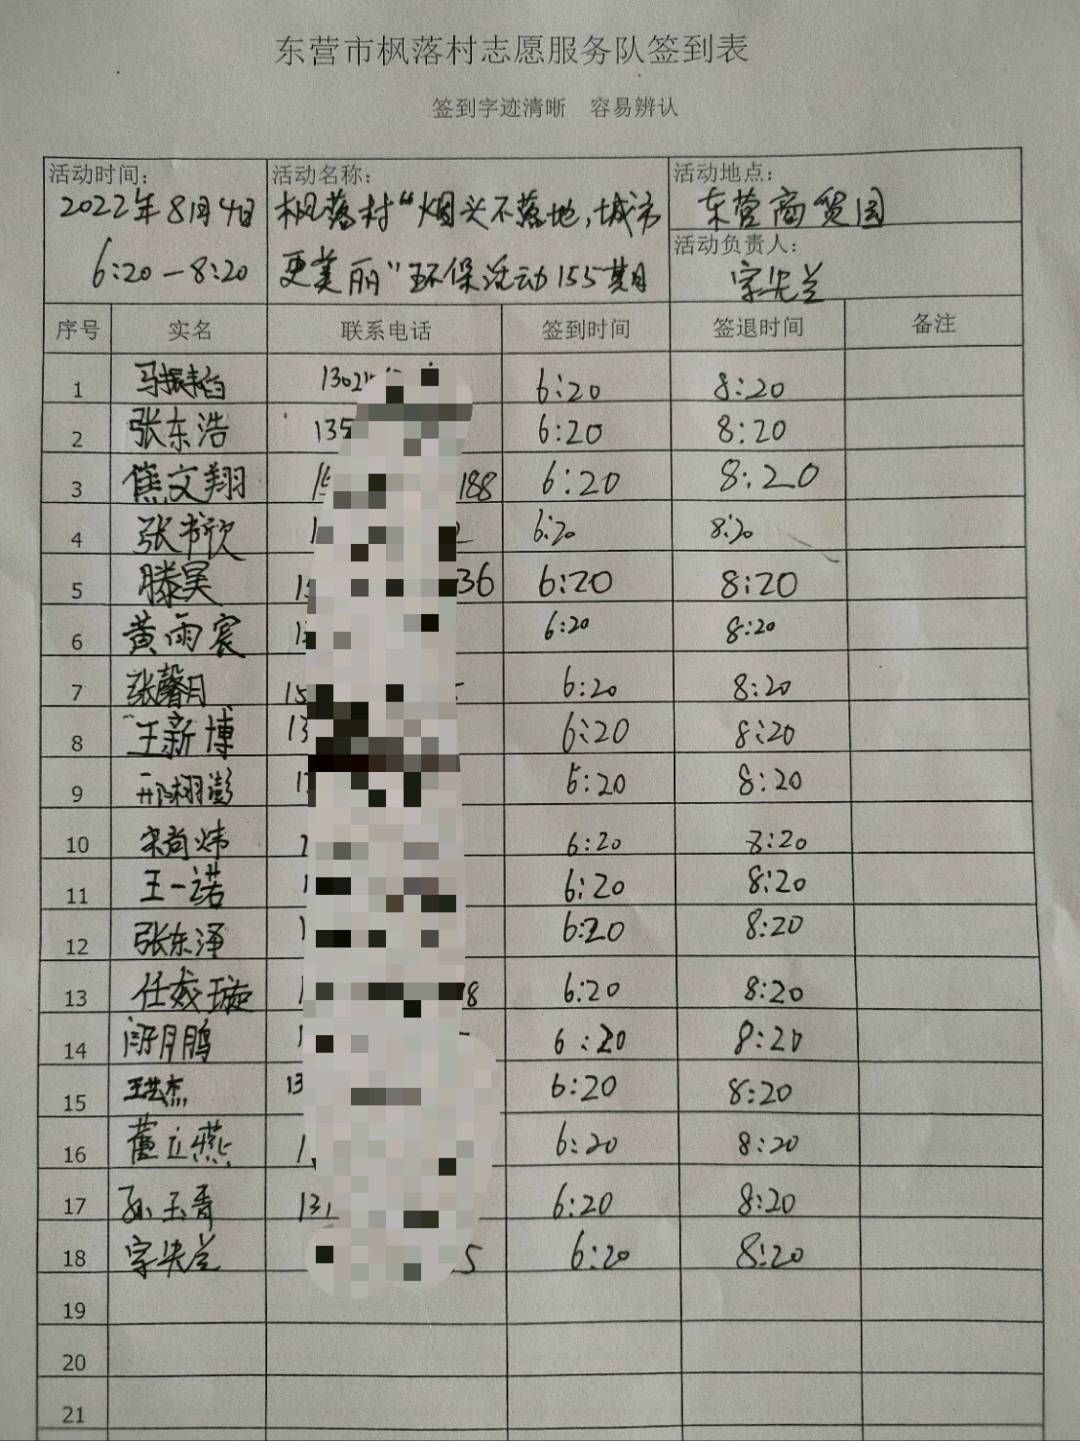 东营市枫落村志愿服务队签到表
签到字迹清晰 容易辨认
活动时间: 2022年8月4日 6:20-8:20
活动名称: 枫落村“烟头不落地,城市更美丽”环保活动155期
活动地点: 东营商贸园
活动负责人:
序号 实名 联系电话 签到时间 签退时间 备注
1 马振韬 1302 6:20 8:20
2 张东浩 135 6:20 8:20
3 焦文翔 188 6:20 8:20
4 张书欣 1 6:20 8:20
5 滕昊 15 36 6:20 8:20
6 黄雨宸 1 6:20 8:20
7 张馨月 15 6:20 8:20
8 王新博 13 6:20 8:20
9 邢栩澎 1 6:20 8:20
10 宋尚炜 6:20 8:20
11 王一诺 1 6:20 8:20
12 张东泽 1 6:20 8:20
13 任 璇 1 8 6:20 8:20
14 月鹏 1 6:20 8:20
15 王洪杰 13 6:20 8:20
16 董立燕 1 6:20 8:20
17 孙玉香 131 6:20 8:20
18 5 6:20 8:20
19
20
21